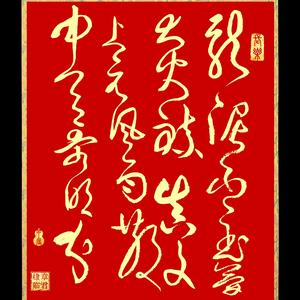 龍泥印玉簡
大火煉真文
上元風雨散
中天歌吹分